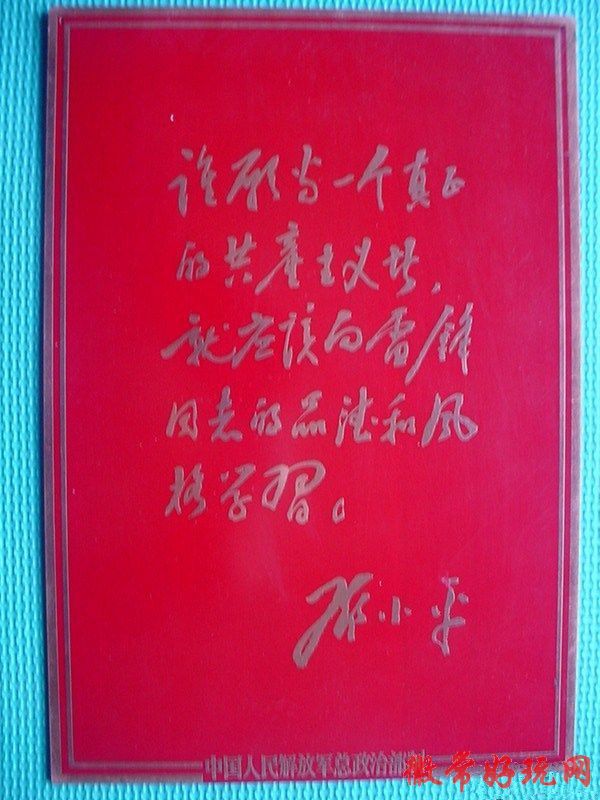 谁愿当一个真正
的共產主义者，
就应该向雷鋒
同志的品德和风
格学習。
邓小平
中国人民解放军总政治部制
徽常好玩网